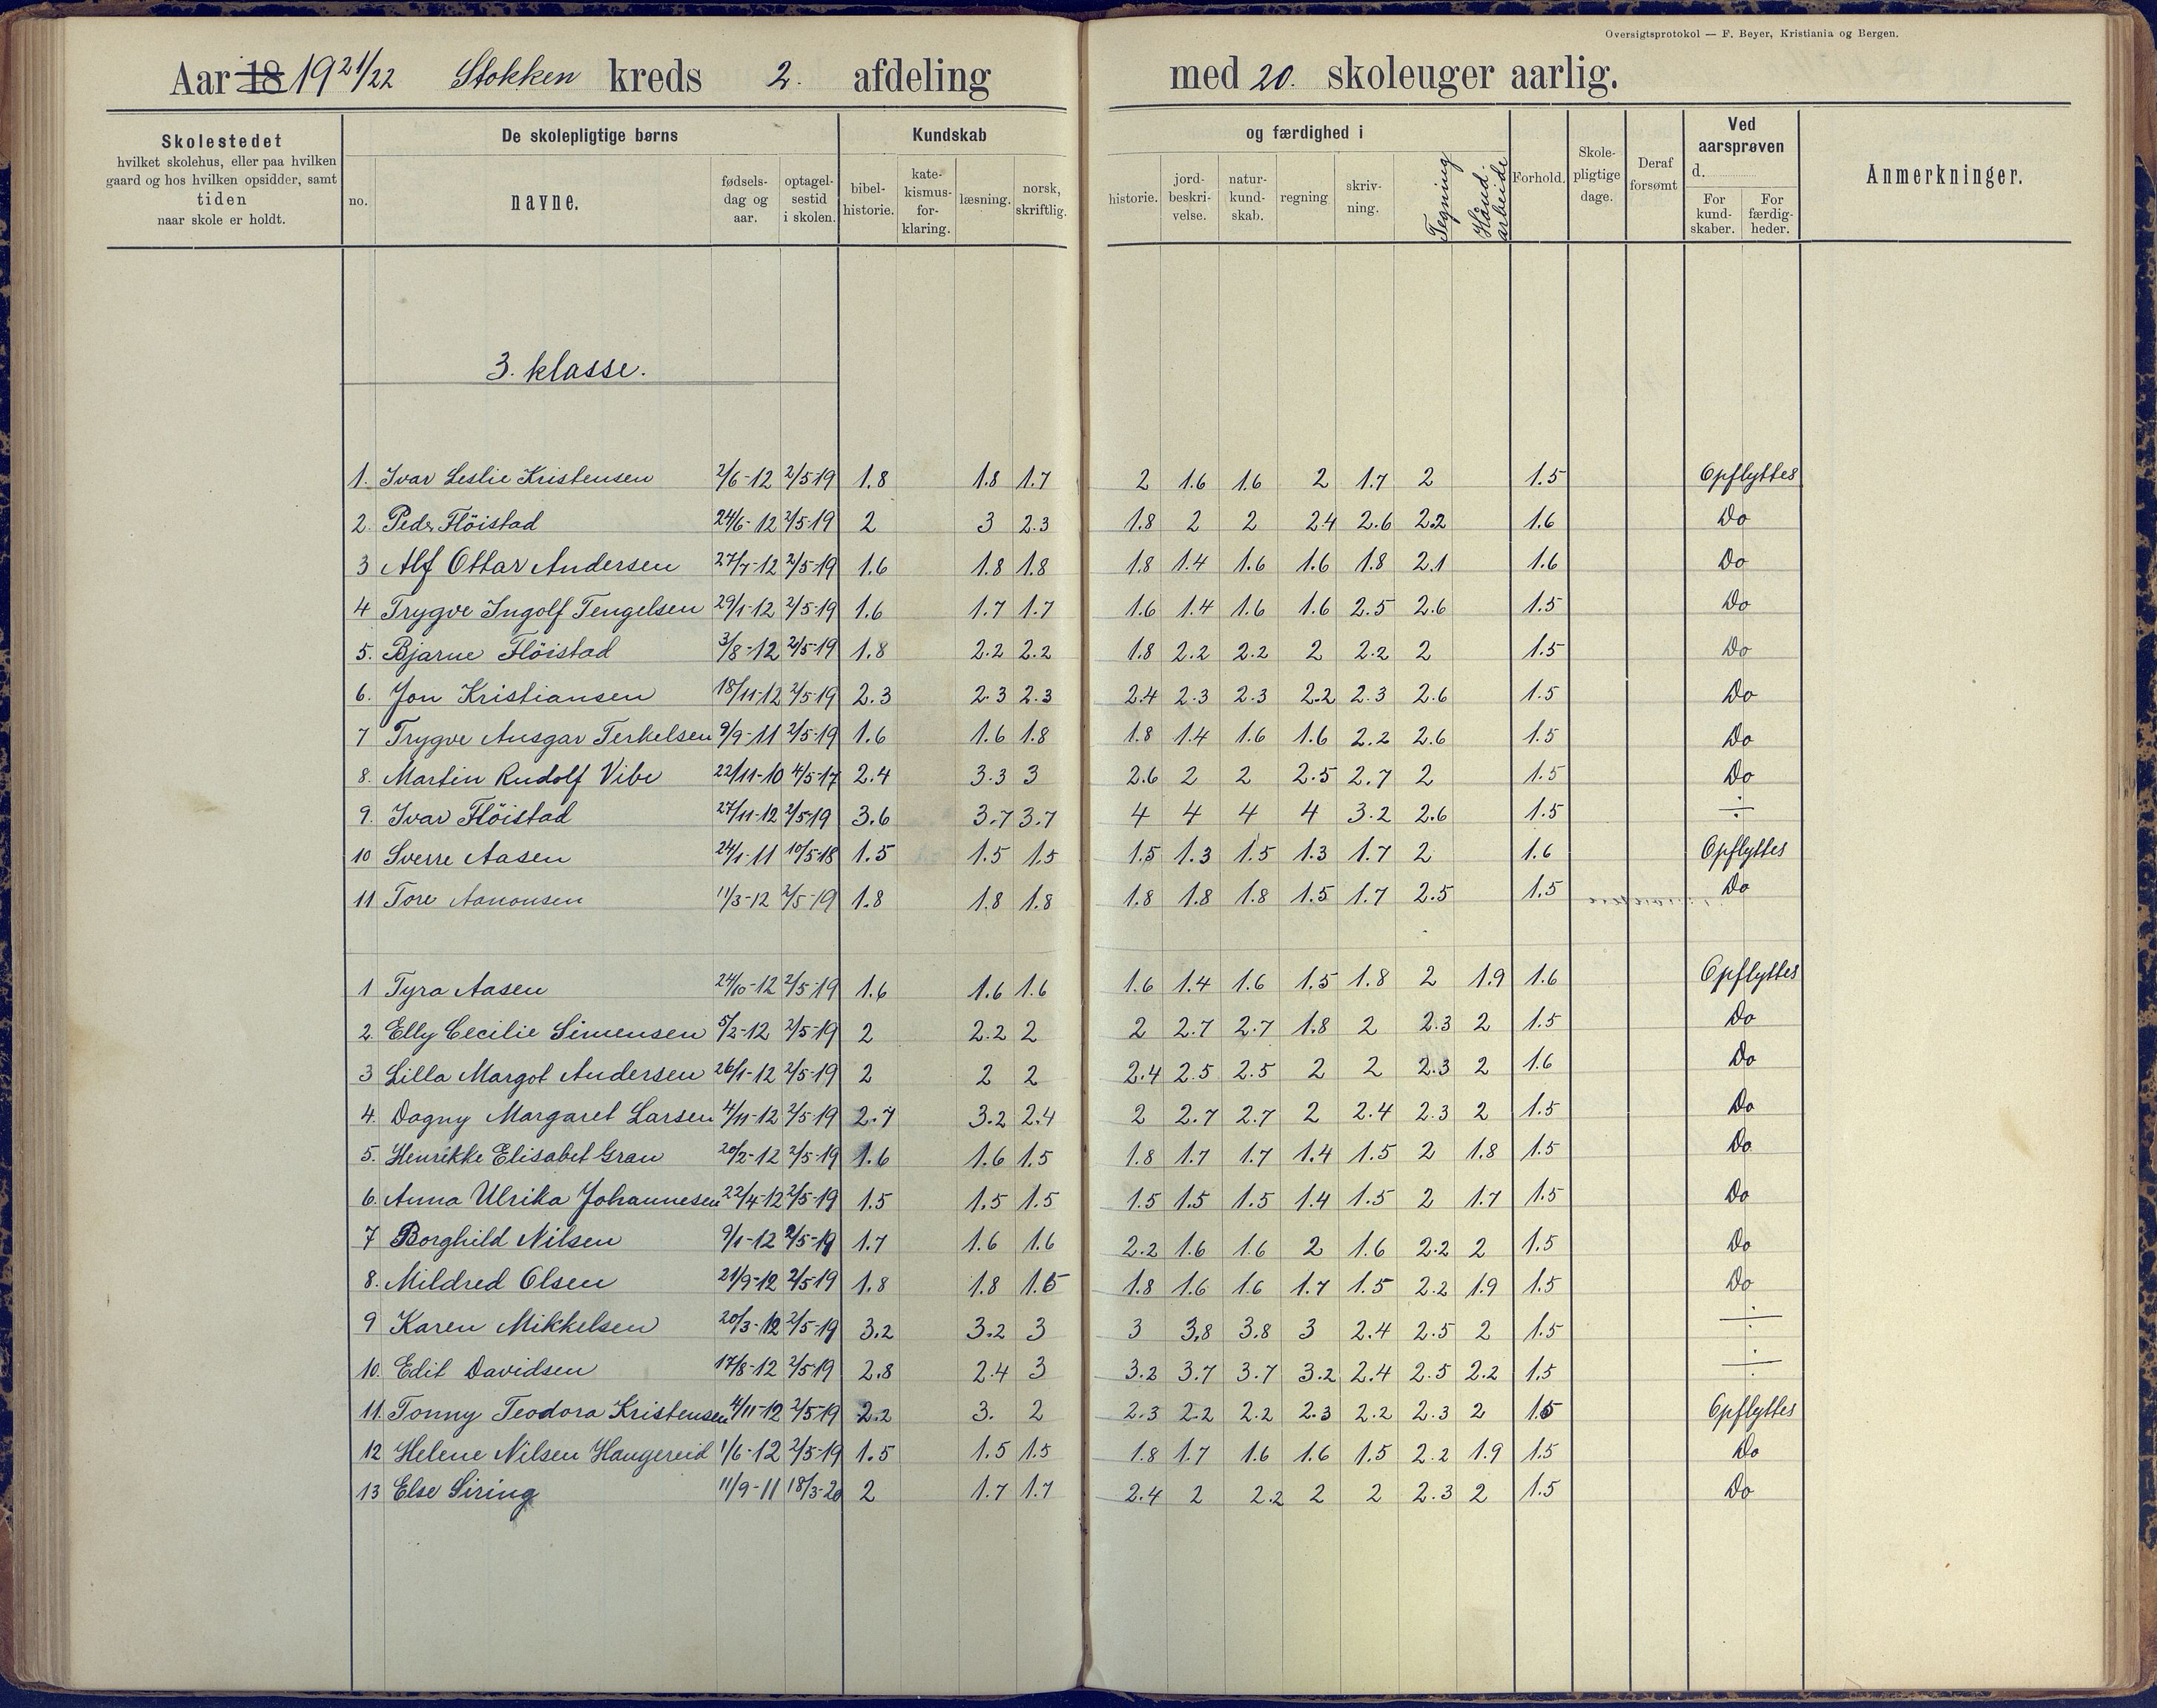 Oversigtsprotokol — F. Beyer, Kristiania og Bergen.
Aar 18 1921/22 Stokken kreds 2. afdeling med 20. skoleuger aarlig.
Skolestedet
hvilket skolehus, eller paa hvilken
gaard og hos hvilken opsidder, samt
tiden
naar skole er holdt.
De skolepligtige børns
no.
navne.
fødsels-
dag og
aar.
optagel-
sestid
i skolen.
Kundskab
bibel-
historie.
kate-
kismus-
for-
klaring.
læsning.
norsk,
skriftlig.
og færdighed i
historie.
jord-
beskri-
velse.
natur-
kund-
skab.
regning
skriv-
ning.
Tegning
Hånd-
arbeide
Forhold.
Skole-
pligtige
dage.
Deraf
forsømt
Ved
aarsprøven
d.
For
kund-
skaber.
For
færdig-
heder.
Anmerkninger.
3. klasse.
1. Ivar Leslie Kristensen 2/6-12 2/5-19 1.8 1.8 1.7 2 1.6 1.6 2 1.7 2 1.5 Opflyttes
2. Peder Flöistad 24/6-12 2/5-19 2 3 2.3 1.8 2 2 2.4 2.6 2.2 1.6 Do
3 Alf Ottar Andersen 27/7-12 2/5-19 1.6 1.8 1.8 1.8 1.4 1.6 1.6 1.8 2.1 1.6 Do
4 Trygve Ingolf Tengelsen 29/1-12 2/5-19 1.6 1.7 1.7 1.6 1.4 1.6 1.6 2.5 2.6 1.5 Do
5. Bjarne Flöistad 3/8-12 2/5-19 1.8 2.2 2.2 1.8 2.2 2.2 2 2.2 2 1.5 Do
6. Jon Kristiansen 18/11-12 2/5-19 2.3 2.3 2.3 2.4 2.3 2.3 2.2 2.3 2.6 1.5 Do
7 Trygve Ansgar Terkelsen 9/9-11 2/5-19 1.6 1.6 1.8 1.8 1.4 1.6 1.6 2.2 2.6 1.5 Do
8. Martin Rudolf Vibe 22/11-10 4/5-17 2.4 3.3 3 2.6 2 2 2.5 2.7 2 1.5 Do
9. Ivar Flöistad 27/11-12 2/5-19 3.6 3.7 3.7 4 4 4 4 3.2 2.6 1.5 ÷
10 Sverre Aasen 24/1-11 10/5-18 1.5 1.5 1.5 1.5 1.3 1.5 1.3 1.7 2 1.6 Opflyttes
11 Tore Aanonsen 11/3-12 2/5-19 1.8 1.8 1.8 1.8 1.8 1.8 1.5 1.7 2.5 1.5 Do
1 Tyra Aasen 24/10-12 2/5-19 1.6 1.6 1.6 1.6 1.4 1.6 1.5 1.8 2 1.9 1.6 Opflyttes
2. Elly Cecilie Simensen 5/2-12 2/5-19 2 2.2 2 2 2.7 2.7 1.8 2 2.3 2 1.5 Do
3 Lilla Margot Andersen 26/1-12 2/5-19 2 2 2 2.4 2.5 2.5 2 2 2.3 2 1.6 Do
4. Dagny Margaret Larsen 4/11-12 2/5-19 2.7 3.2 2.4 2 2.7 2.7 2 2.4 2.3 2 1.5 Do
5. Henrikke Elisabet Gran 20/2-12 2/5-19 1.6 1.6 1.5 1.8 1.7 1.7 1.4 1.5 2 1.8 1.5 Do
6. Anna Ulrika Johannesen 22/4-12 2/5-19 1.5 1.5 1.5 1.5 1.5 1.5 1.4 1.5 2 1.7 1.5 Do
7 Borghild Nilsen 9/1-12 2/5-19 1.7 1.6 1.6 2.2 1.6 1.6 2 1.6 2.2 2 1.5 Do
8. Mildred Olsen 21/9-12 2/5-19 1.8 1.8 1.5 1.8 1.6 1.6 1.7 1.5 2.2 1.9 1.5 Do
9 Karen Mikkelsen 20/3-12 2/5-19 3.2 3.2 3 3 3.8 3.8 3 2.4 2.5 2 1.5 ÷
10. Edit Davidsen 17/8-12 2/5-19 2.8 2.4 3 3.2 3.7 3.7 3.2 2.4 2.5 2.2 1.5 ÷
11. Tonny Teodora Kristensen 4/11-12 2/5-19 2.2 3. 2 2.3 2.2 2.2 2.3 2.2 2.3 2 1.5 Opflyttes
12 Helene Nilsen Haugereid 1/6-12 2/5-19 1.5 1.5 1.5 1.8 1.7 1.6 1.6 1.5 2.2 1.9 1.5 Do
13 Else Siring 11/9-11 18/3-20 2 1.7 1.7 2.4 2 2.2 2 2 2.3 2 1.5 Do